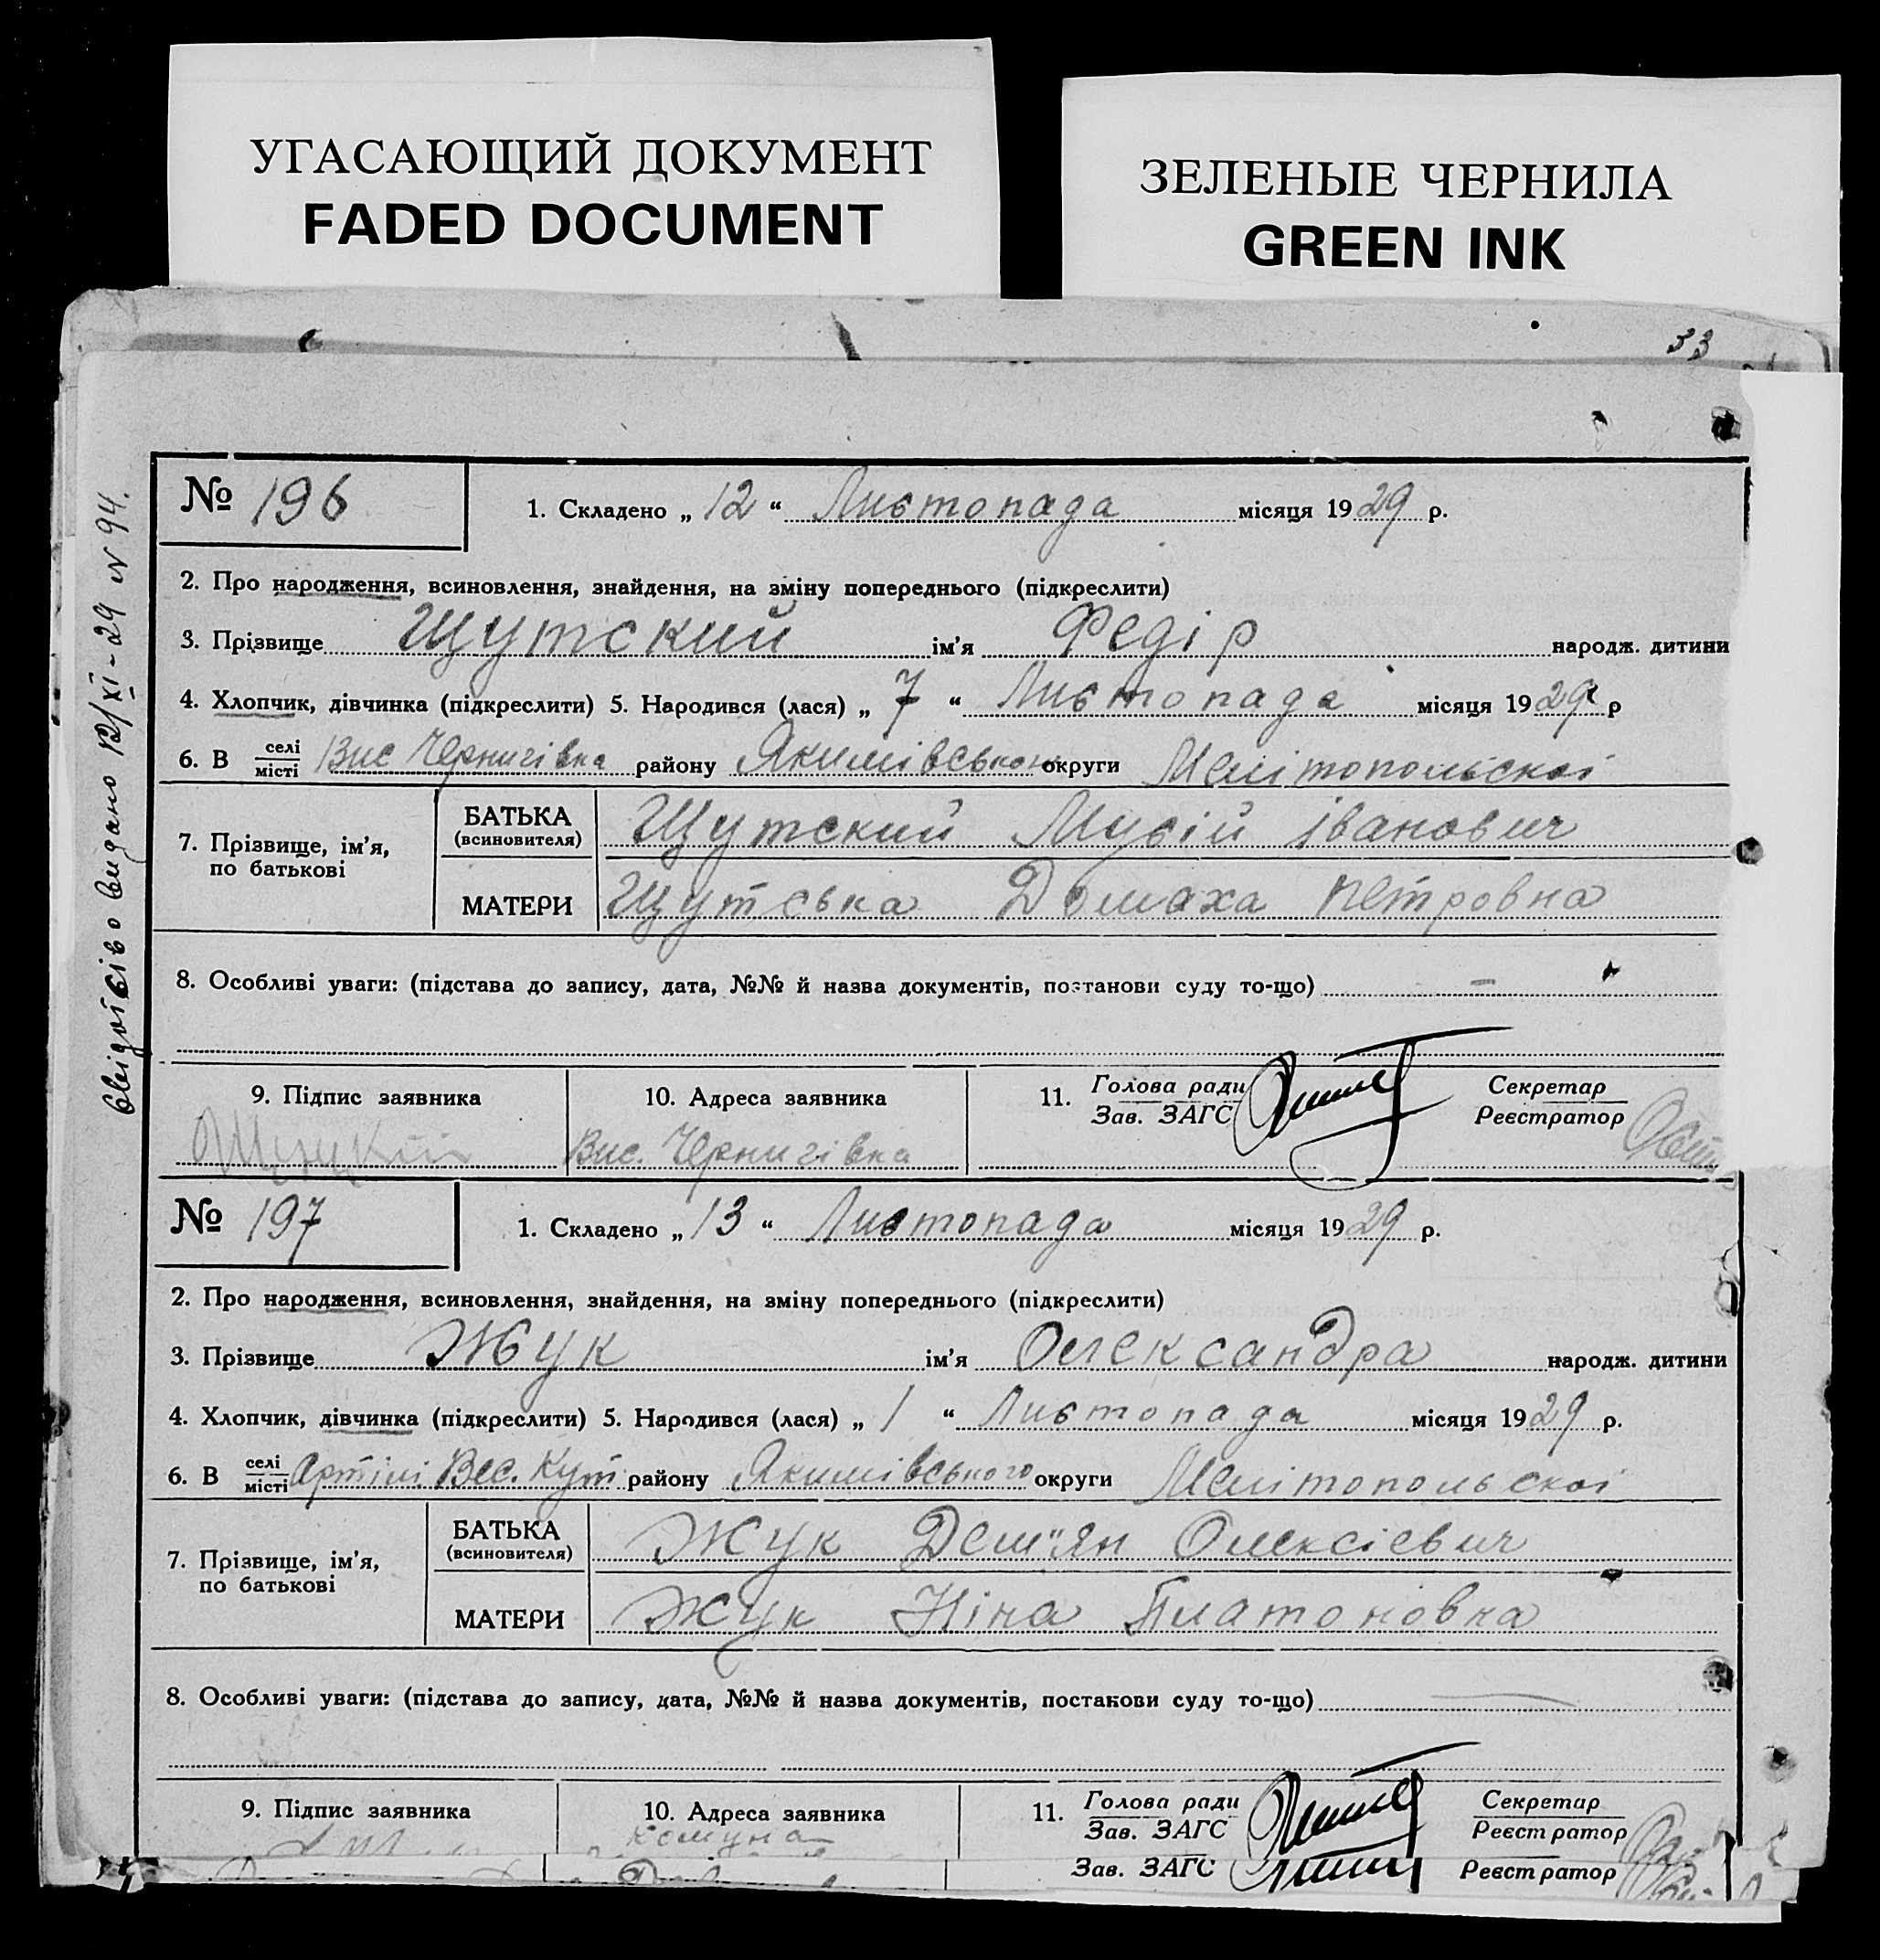 УГАСАЮЩИЙ ДОКУМЕНТ
FADED DOCUMENT
ЗЕЛЕНЫЕ ЧЕРНИЛА
GREEN INK
33
видано 12/XI-29 N 94.
№ 196
1. Складено „ 12 “ Листопада місяця 1929 р.
2. Про народження, всиновлення, знайдення, на зміну попереднього (підкреслити)
3. Прізвище Щутский ім’я Федір народж. дитини
4. Хлопчик, дівчинка (підкреслити) 5. Народився (лася) „ 7 “ Листопада місяця 1929 р
6. В селі місті Вис Чернигівка району Якимівського округи Мелітопольскої
7. Прізвище, ім’я, по батькові
БАТЬКА (всиновителя) Щутский Мусій Іванович
МАТЕРИ Щутська Домаха Петровна
8. Особливі уваги: (підстава до запису, дата, №№ й назва документів, постанови суду то-що) –
9. Підпис заявника
10. Адреса заявника
11. Голова ради Зав. ЗАГС
Секретар Реєстратор
Вис. Чернигівка
№ 197
1. Складено „ 13 “ Листопада місяця 1929 р.
2. Про народження, всиновлення, знайдення, на зміну попереднього (підкреслити)
3. Прізвище Жук ім’я Олександра народж. дитини
4. Хлопчик, дівчинка (підкреслити) 5. Народився (лася) „ 1 “ Листопада місяця 1929 р.
6. В селі місті Артілі Вес. Кут району Якимівського округи Мелітопольскої
7. Прізвище, ім’я, по батькові
БАТЬКА (всиновителя) Жук Дем"ян Олексієвич
МАТЕРИ Жук Ніна Платоновна
8. Особливі уваги: (підстава до запису, дата, №№ й назва документів, постанови суду то-що)
9. Підпис заявника
10. Адреса заявника
11. Голова ради Зав. ЗАГС
Секретар Реєстратор
комуна
Зав. ЗАГС Реєстратор